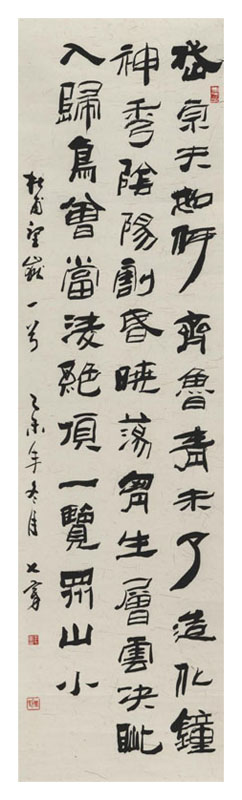 岱宗夫如何齊魯青未了造化鐘
神秀陰陽割昏曉蕩胸生層雲決眥
入歸鳥會當凌絕頂一覽眾山小
杜甫望嶽一首 乙未年冬月